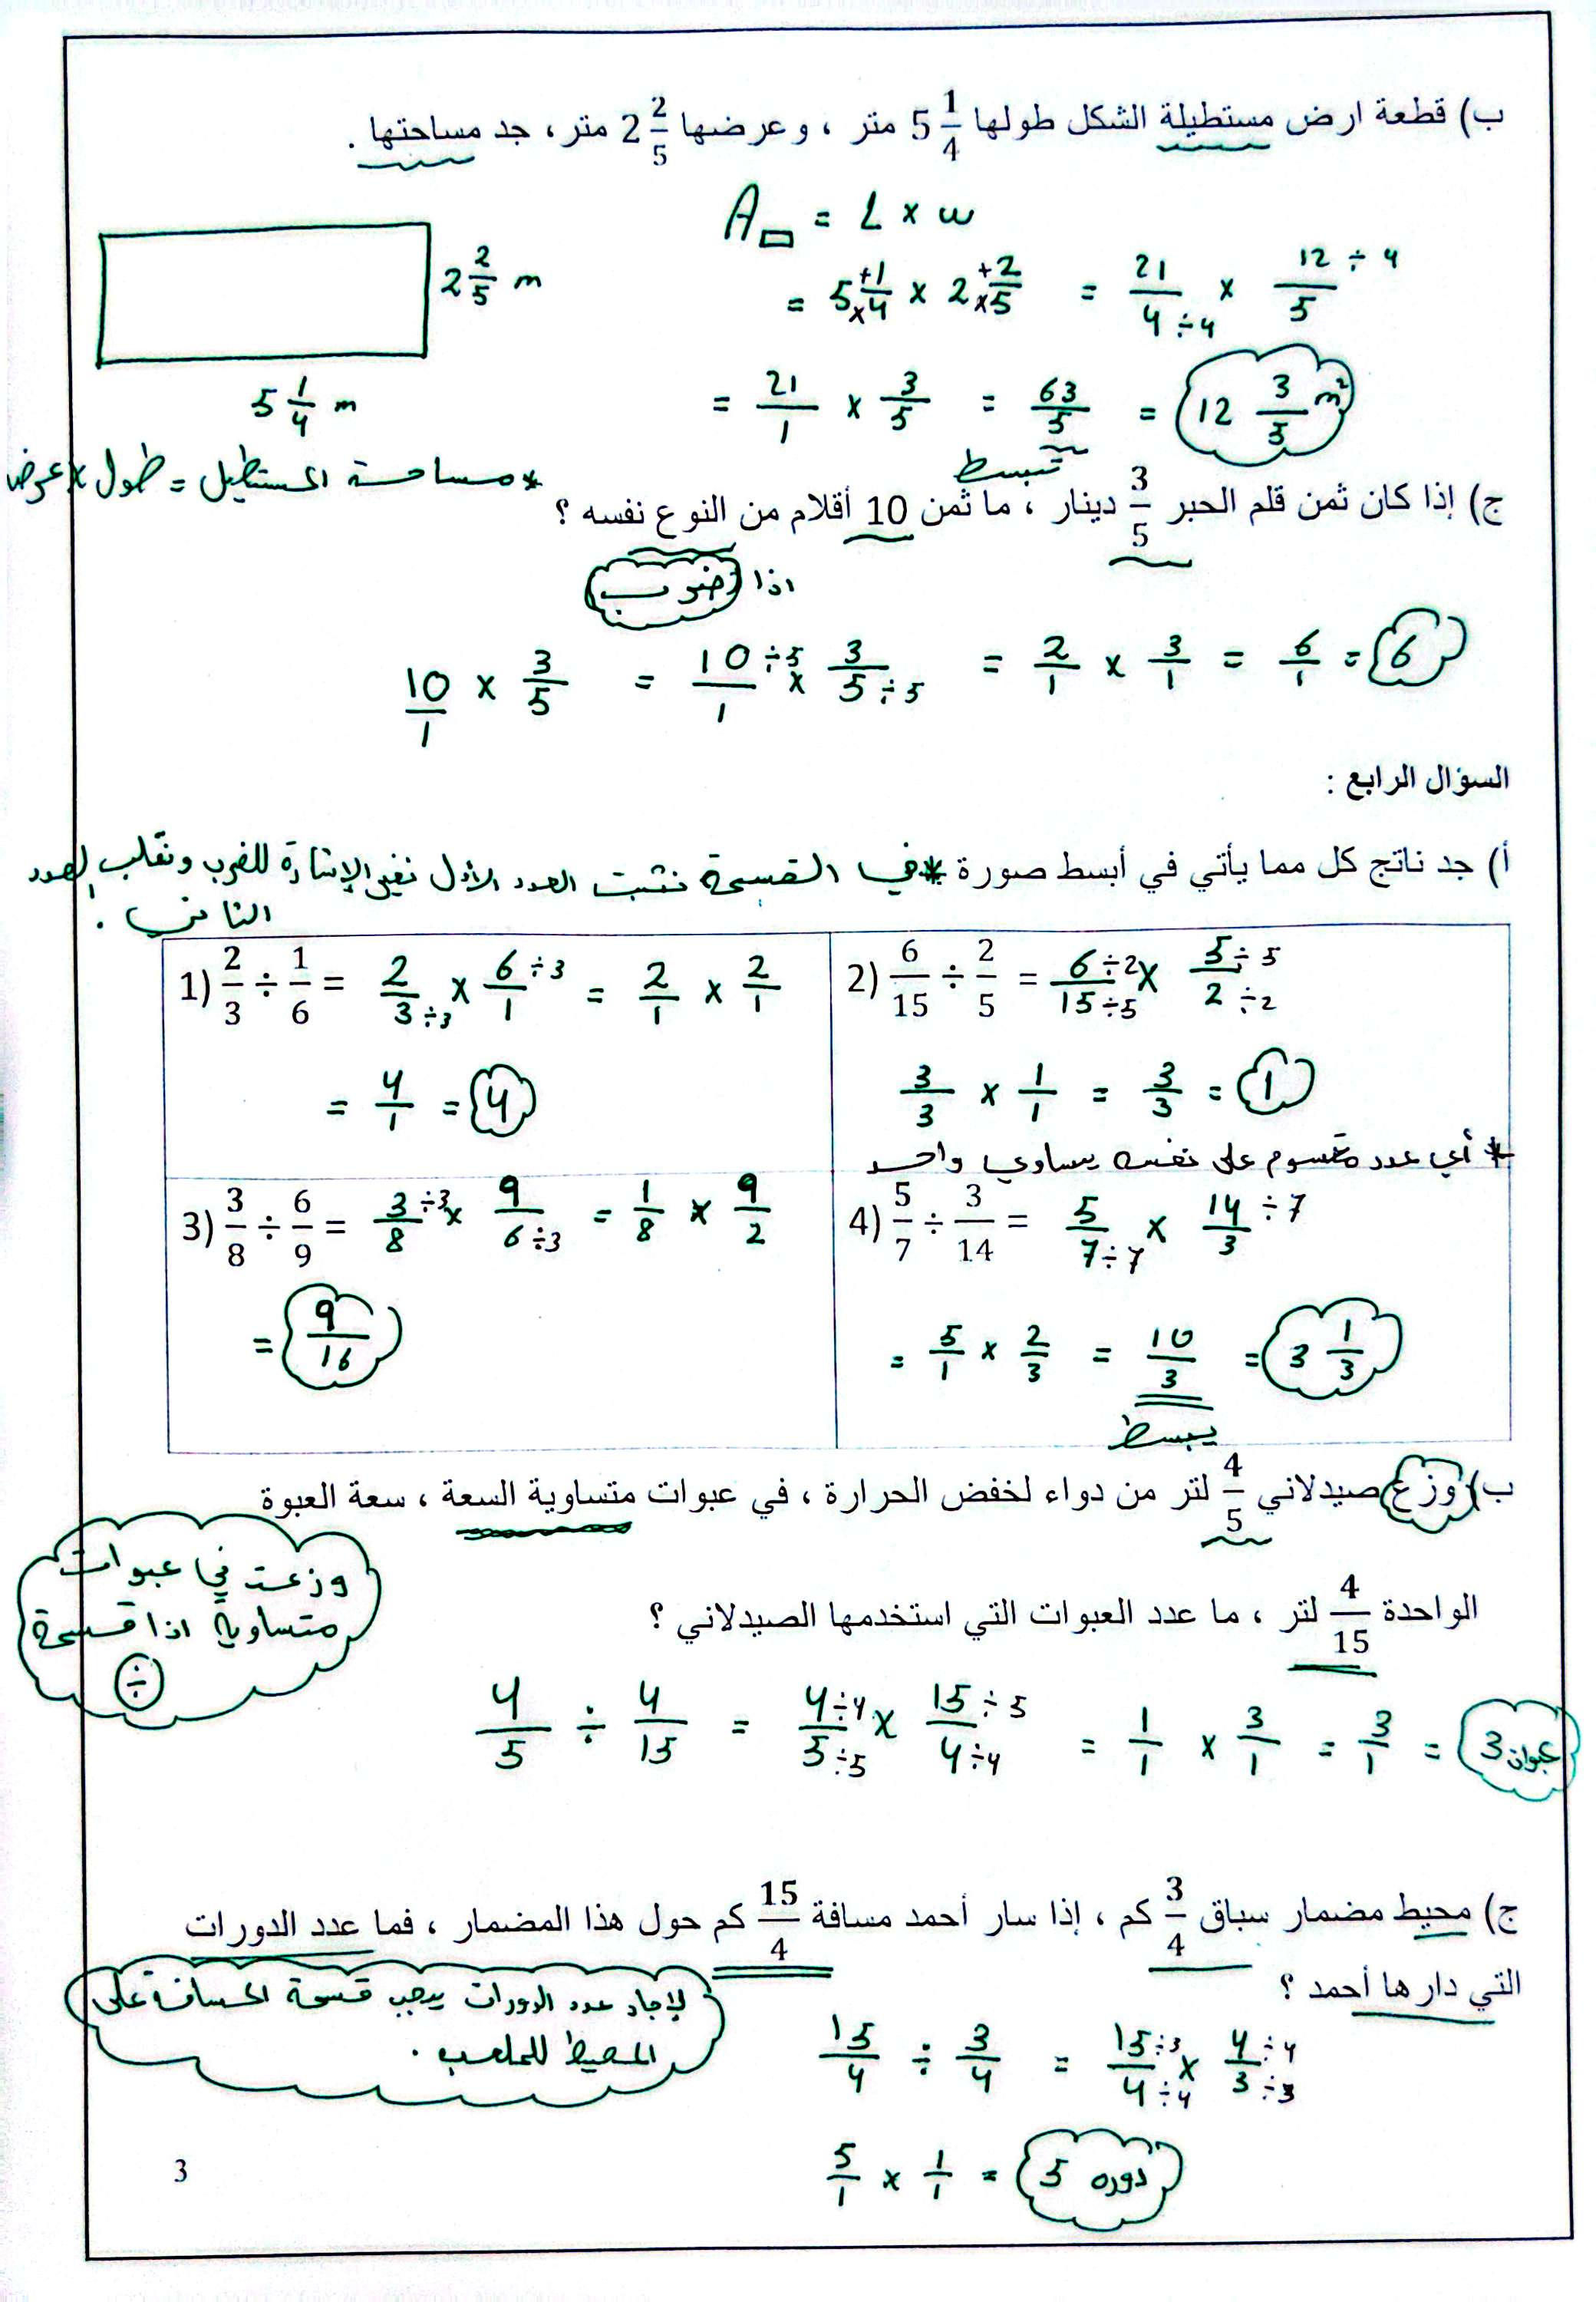 ب) قطعة ارض مستطيلة الشكل طولها 5 1/4 متر ، وعرضها 2 2/5 متر، جد مساحتها .
A▭ = L × w
2 2/5 m
= 5 +1/×4 × 2 +2/×5 = 21/4÷4 × 12÷4/5
5 1/4 m
= 21/1 × 3/5 = 63/5 = 12 3/5 m²
تبسط
* مساحة المستطيل = طول × عرض
ج) إذا كان ثمن قلم الحبر 3/5 دينار ، ما ثمن 10 أقلام من النوع نفسه ؟
اذا ضرب
10/1 × 3/5 = 10÷5/1 × 3/5÷5 = 2/1 × 3/1 = 6/1 = 6
السؤال الرابع :
أ) جد ناتج كل مما يأتي في أبسط صورة * في القسمة نثبت العدد الأول نغير الإشارة للضرب ونقلب العدد
الثاني .
1) 2/3 ÷ 1/6 = 2/3÷3 × 6÷3/1 = 2/1 × 2/1
= 4/1 = 4
2) 6/15 ÷ 2/5 = 6÷2/15÷5 × 5÷5/2÷2
3/3 × 1/1 = 3/3 = 1
* أي عدد مقسوم على نفسه يساوي واحد
3) 3/8 ÷ 6/9 = 3÷3/8 × 9/6÷3 = 1/8 × 9/2
= 9/16
4) 5/7 ÷ 3/14 = 5/7÷7 × 14÷7/3
= 5/1 × 2/3 = 10/3 = 3 1/3
يبسط
ب) وزع صيدلاني 4/5 لتر من دواء لخفض الحرارة ، في عبوات متساوية السعة ، سعة العبوة
الواحدة 4/15 لتر ، ما عدد العبوات التي استخدمها الصيدلاني ؟
وزعت في عبوات
متساوية اذا قسمة
÷
4/5 ÷ 4/15 = 4÷4/5÷5 × 15÷5/4÷4 = 1/1 × 3/1 = 3/1 = 3 عبوات
ج) محيط مضمار سباق 3/4 كم ، إذا سار أحمد مسافة 15/4 كم حول هذا المضمار ، فما عدد الدورات
التي دارها أحمد ؟
لإيجاد عدد الدورات يجب قسمة المسافة على
المحيط للملعب .
15/4 ÷ 3/4 = 15÷3/4÷4 × 4÷4/3÷3
5/1 × 1/1 = 5 دوره
3